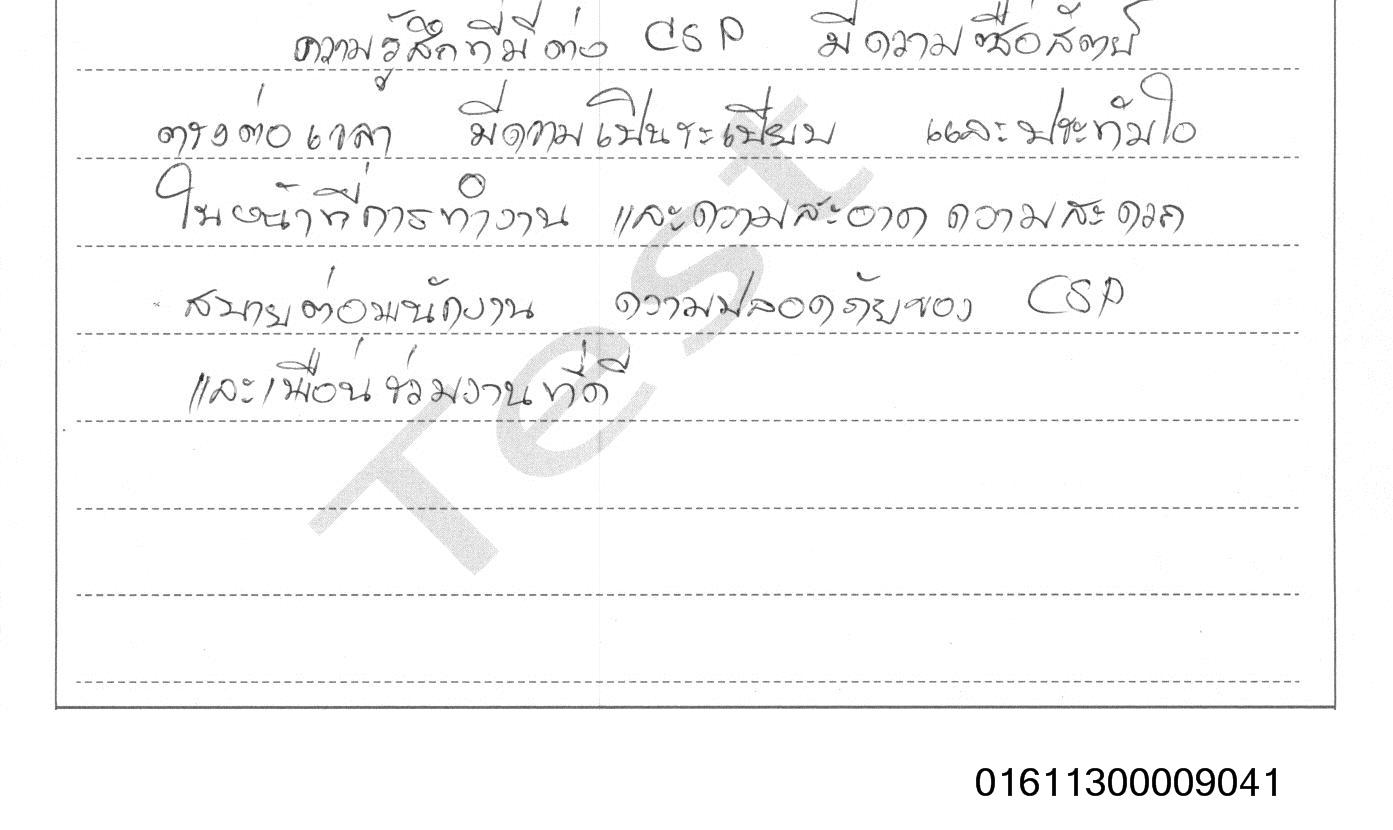 ความรู้สึกที่มีต่อ CSP มีความซื่อสัตย์
ตรงต่อเวลา มีความเป็นระเบียบ และประทับใจ
ในหน้าที่การทำงาน และความสะอาด ความสะดวก
สบายต่อพนักงาน ความปลอดภัยของ CSP
และเพื่อนร่วมงานที่ดี
Test
01611300009041